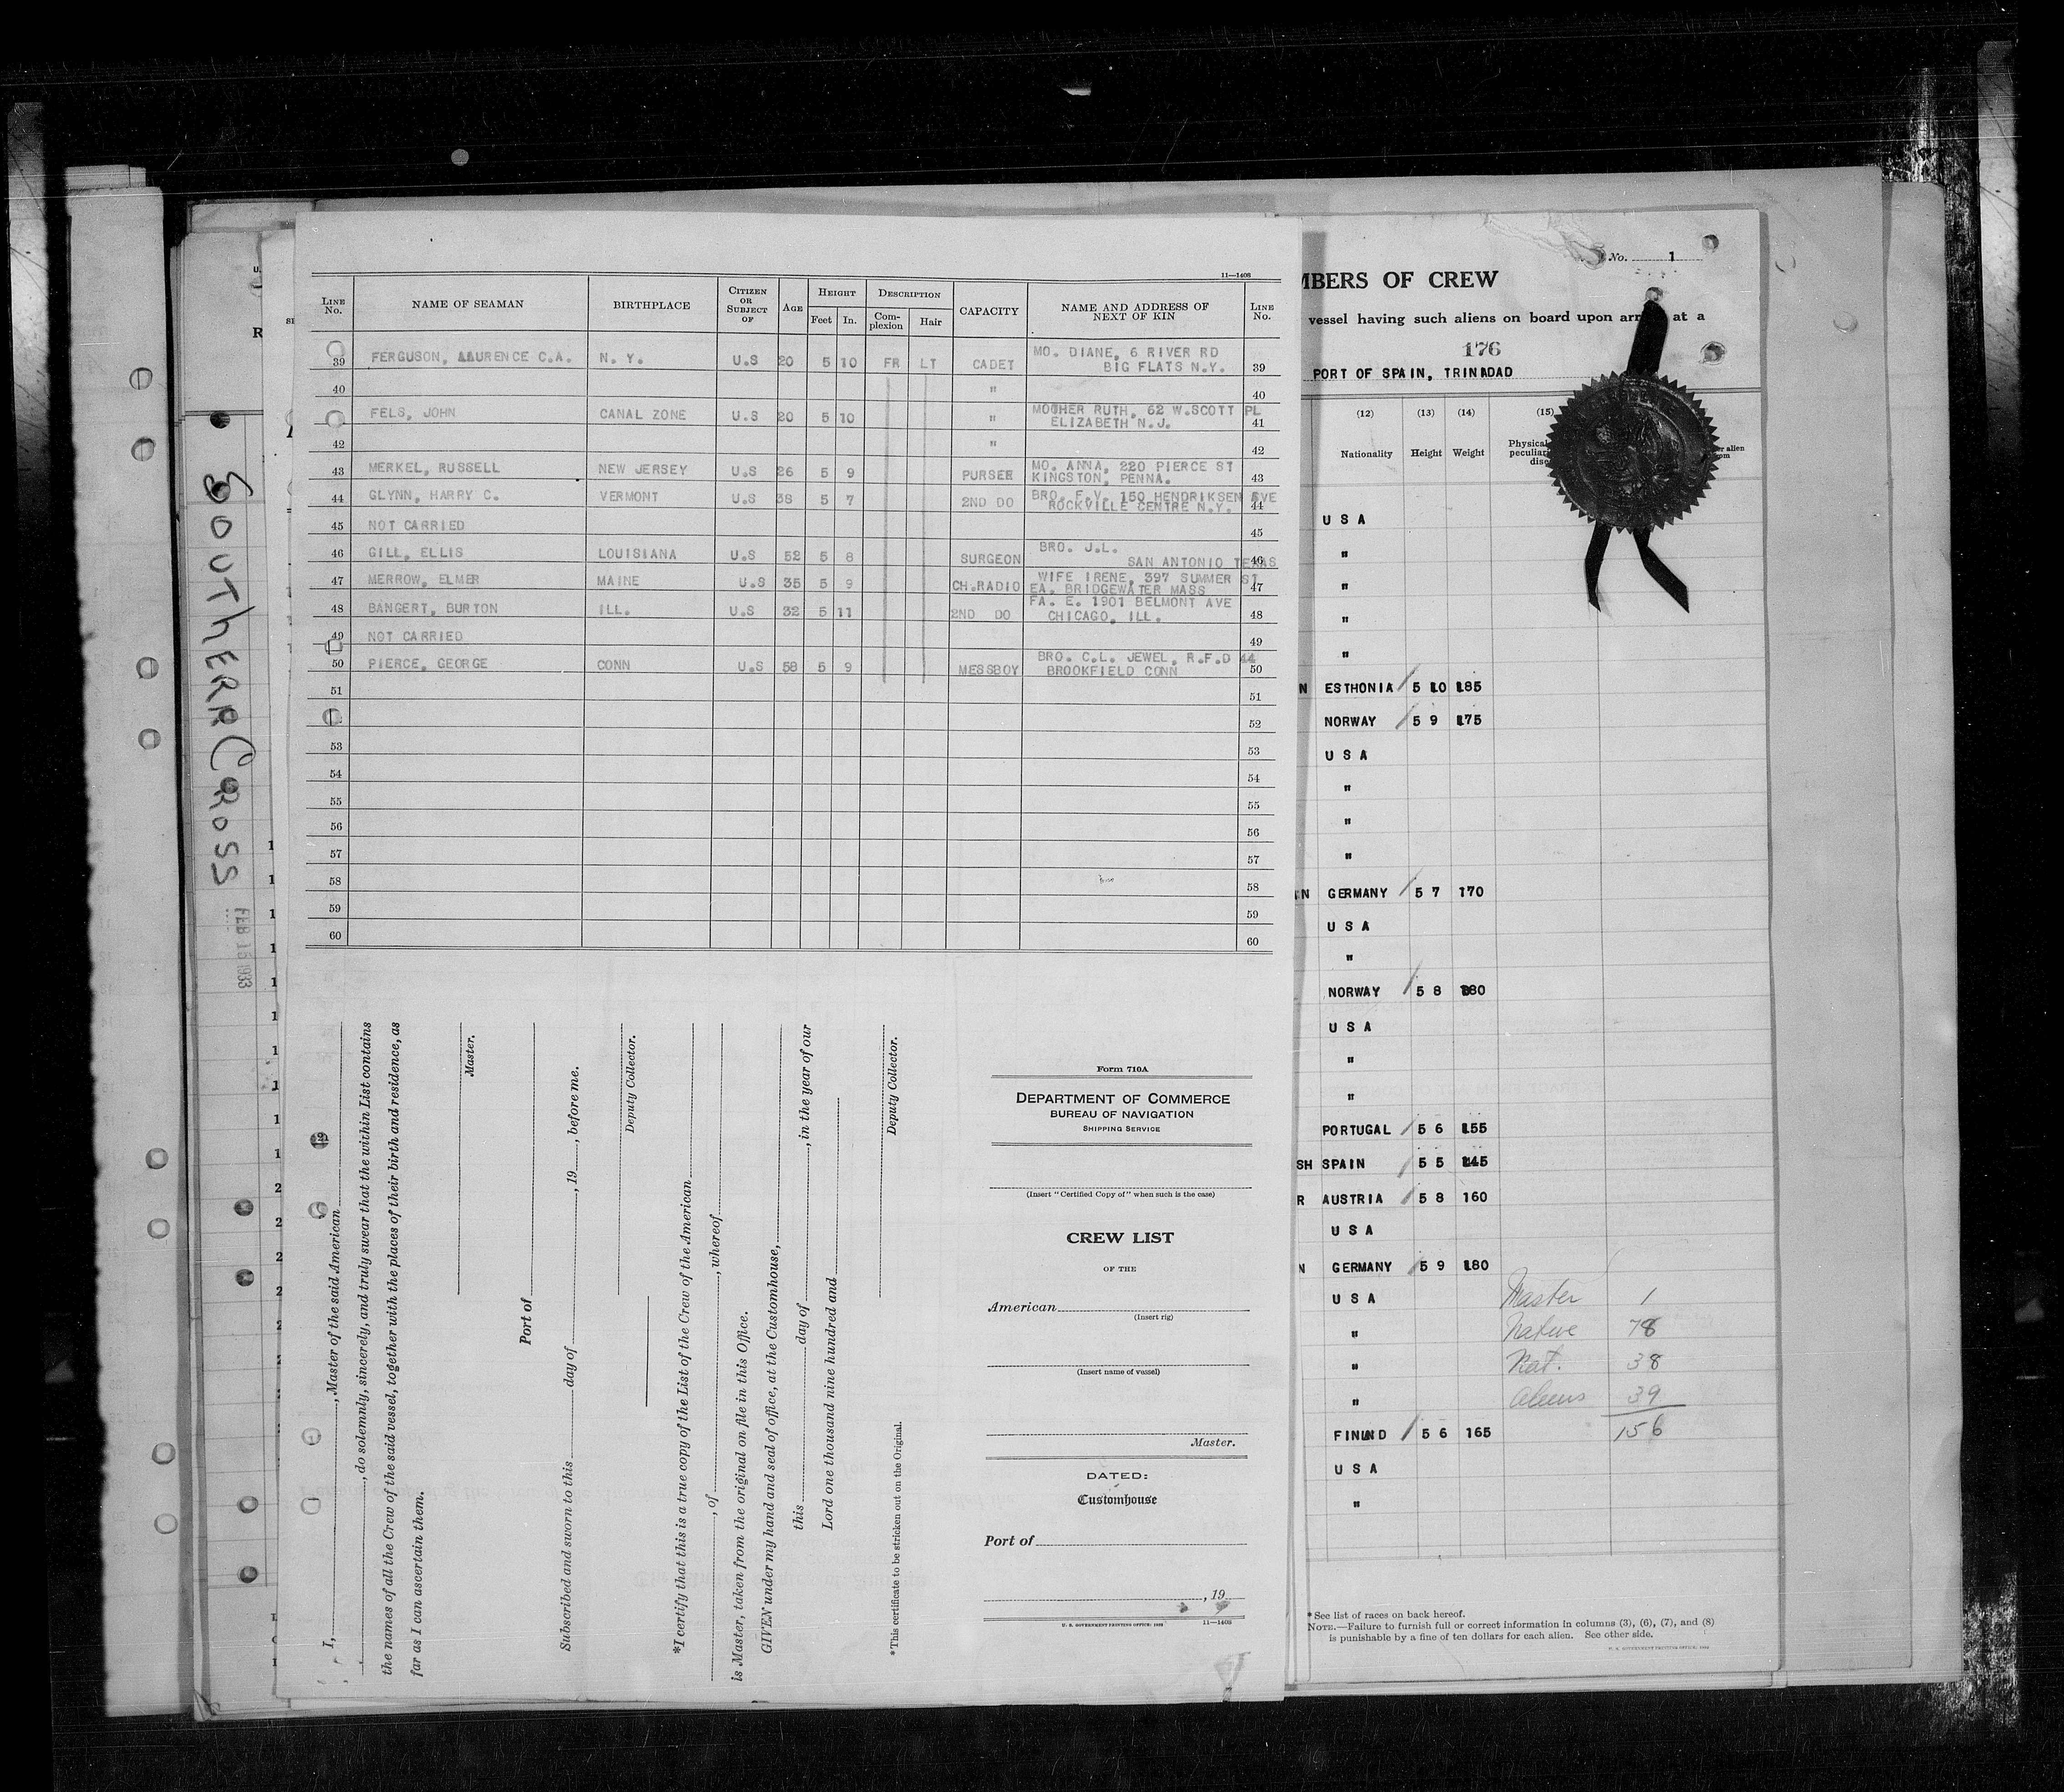 11—1408
LINE No. NAME OF SEAMAN BIRTHPLACE CITIZEN OR SUBJECT OF AGE HEIGHT Feet In. DESCRIPTION Com-plexion Hair CAPACITY NAME AND ADDRESS OF NEXT OF KIN LINE No.
39 FERGUSON, LAURENCE C.A. N. Y. U.S 20 5 10 FR LT CADET MO. DIANE, 6 RIVER RD BIG FLATS N.Y. 39
40 " 40
41 FELS, JOHN CANAL ZONE U.S 20 5 10 " MOTHER RUTH, 62 W.SCOTT PL ELIZABETH N.J. 41
42 " 42
43 MERKEL, RUSSELL NEW JERSEY U.S 26 5 9 PURSER MO. ANNA, 220 PIERCE ST KINGSTON, PENNA. 43
44 GLYNN, HARRY C. VERMONT U.S 38 5 7 2ND DO BRO. F.V. 150 HENDRIKSEN AVE ROCKVILLE CENTRE N.Y. 44
45 NOT CARRIED 45
46 GILL, ELLIS LOUISIANA U.S 52 5 8 SURGEON BRO. J.L. SAN ANTONIO TEXAS 46
47 MERROW, ELMER MAINE U.S 35 5 9 CH.RADIO WIFE IRENE, 397 SUMMER ST EA. BRIDGEWATER MASS 47
48 BANGERT, BURTON ILL. U.S 32 5 11 2ND DO FA. E. 1901 BELMONT AVE CHICAGO, ILL. 48
49 NOT CARRIED 49
50 PIERCE, GEORGE CONN U.S 58 5 9 MESSBOY BRO. C.L. JEWEL, R.F.D 44 BROOKFIELD CONN 50
51 51
52
53 53
54 54
55 55
56 56
57 57
58 58
59 59
60 60
I, , Master of the said American
, do solemnly, sincerely, and truly swear that the within List contains
the names of all the Crew of the said vessel, together with the places of their birth and residence, as
far as I can ascertain them.
Master.
Port of
Subscribed and sworn to this day of , 19 , before me.
Deputy Collector.
*I certify that this is a true copy of the List of the Crew of the American
, of , whereof
is Master, taken from the original on file in this Office.
GIVEN under my hand and seal of office, at the Customhouse,
this day of , in the year of our
Lord one thousand nine hundred and
Deputy Collector.
*This certificate to be stricken out on the Original.
Form 710A
DEPARTMENT OF COMMERCE
BUREAU OF NAVIGATION
SHIPPING SERVICE
(Insert "Certified Copy of" when such is the case)
CREW LIST
OF THE
American
(Insert rig)
(Insert name of vessel)
Master.
DATED:
Customhouse
Port of
, 19
U. S. GOVERNMENT PRINTING OFFICE: 11—1408
SOUTHERN CROSS
FEB 15 1933
No. 1
MBERS OF CREW
vessel having such aliens on board upon arr at a
176
PORT OF SPAIN, TRINIDAD
(12) (13) (14) (15)
Nationality Height Weight Physical peculiar dise er alien
U S A
"
"
"
"
N ESTHONIA / 5 10 185
NORWAY / 5 9 175
U S A
"
"
"
N GERMANY / 5 7 170
U S A
"
NORWAY / 5 8 180
U S A
"
"
PORTUGAL / 5 6 155
SH SPAIN / 5 5 145
R AUSTRIA / 5 8 160
U S A
N GERMANY / 5 9 180
U S A Master 1
" Native 78
" Nat. 38
" Aliens 39
156
FINLND / 5 6 165
U S A
"
* See list of races on back hereof.
NOTE.—Failure to furnish full or correct information in columns (3), (6), (7), and (8)
is punishable by a fine of ten dollars for each alien. See other side.
U. S. GOVERNMENT PRINTING OFFICE